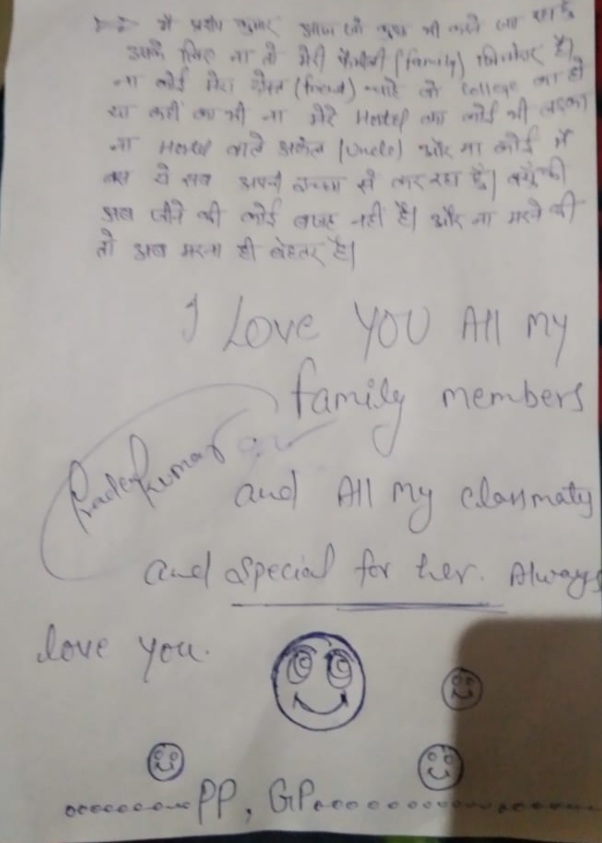 मैं प्रदीप कुमार आज जो कुछ भी करने जा रहा हूँ
उसके लिए ना तो मेरी फैमेली (family) जिम्मेदार है।
ना कोई मेरा दोस्त (friend) चाहे वो College का हो
या कहीं का भी ना मेरे Hostel का कोई भी लड़का
ना Hostel वाले अंकल (Uncle) और ना कोई मैं
बस ये सब अपनी इच्छा से कर रहा हूँ। क्यूंकी
अब जीने की कोई वजह नहीं है। और ना मरने की
तो अब मरना ही बेहतर है।
I Love YOU All my
family members
Pradeep Kumar
and All my classmaty
and special for her. Always
love you.
PP, GP